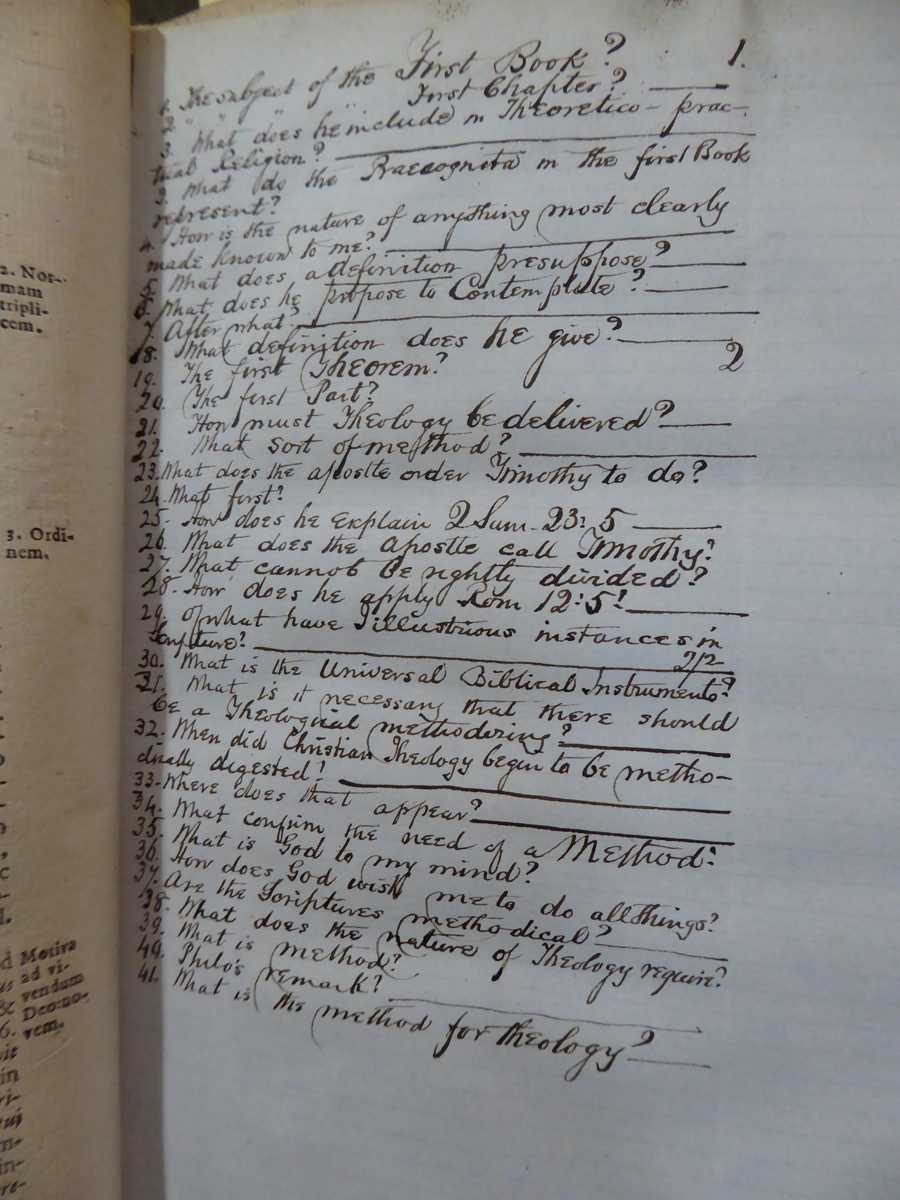 2. Nor-
mam
tripli-
cem.
3. Ordi-
nem.
Motiva
ad vi-
& vendum
6. Deo:no-
vem.
1.
1. The subject of the First Book?
2 " " " " First Chapter?
3. What does he include in Theoretico-prac-
tical Religion?
3. What do the Praecognita in the first Book
represent?
4. How is the nature of anything most clearly
made known to me?
5. What does a definition presuppose?
6. What does he propose to Contemplate?
7. After what?
18. What definition does he give?
2
19. The first Theorem?
20. The first Part?
21. How must Theology be delivered?
22. What sort of method?
23. What does the apostle order Timothy to do?
24. What first?
25. How does he explain 2 Sam. 23:5
26. What does the apostle call Timothy?
27. What cannot be rightly divided?
28. How does he apply Rom 12:5?
29. Of what have illustrious instances in
Scripture?
2/2
30. What is the Universal Biblical Instrument?
31. What is it necessary that there should
be a Theological methodizing?
32. When did Christian Theology begin to be metho-
dically digested?
33. Where does that appear?
34. What confirm the need of a Method:
35. What is God to my mind?
36. How does God wish me to do all things?
37. Are the Scriptures methodical?
38. What does the nature of Theology require?
39. What is method?
40. Philo's remark?
41. What is the method for theology?